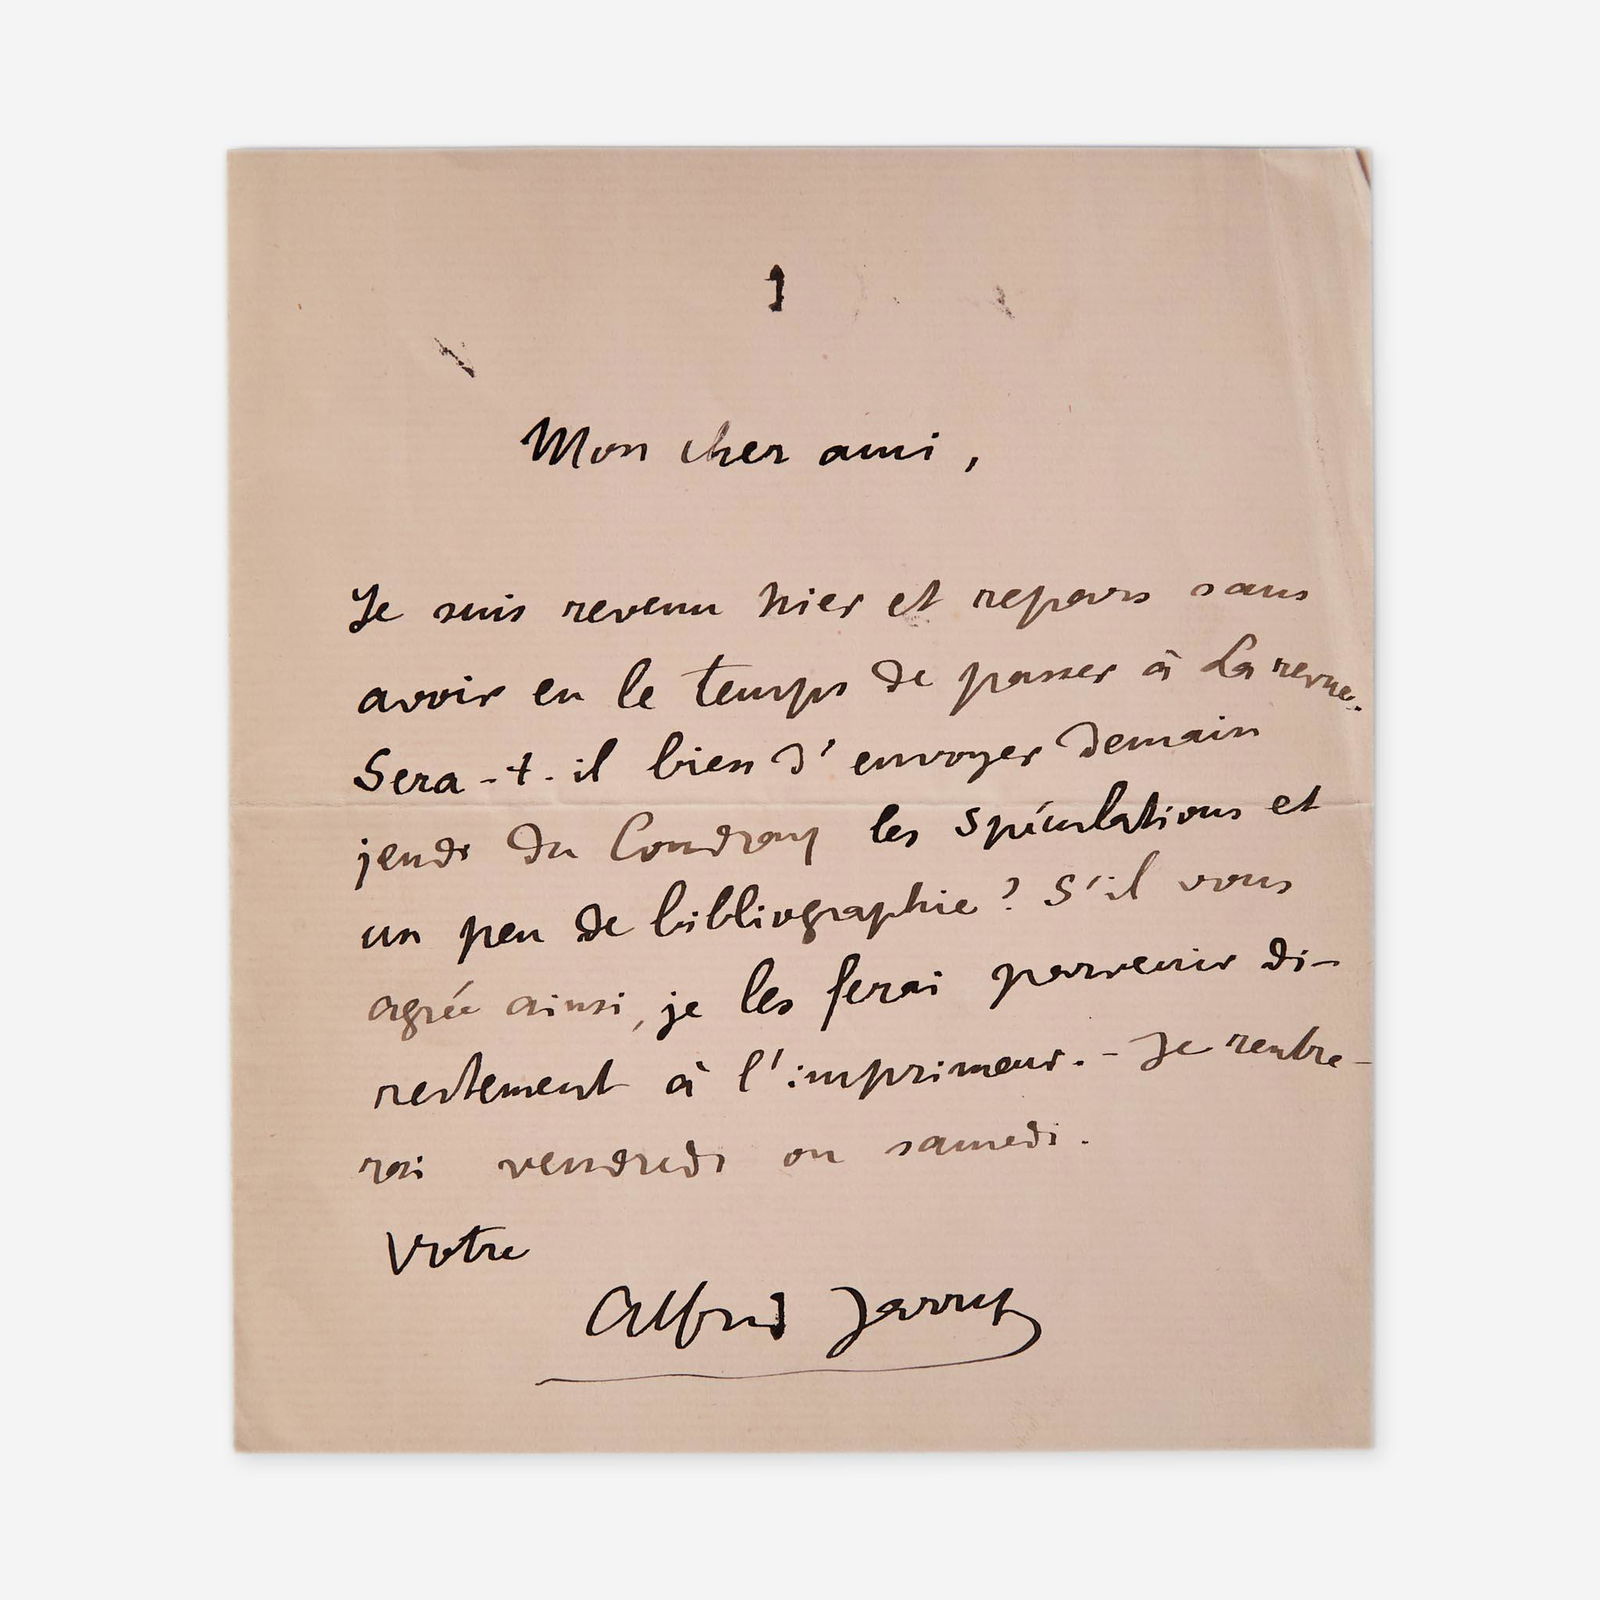 Mon cher ami,
Je suis revenu hier et repars sans
avoir eu le temps de passer à La revue.
Sera-t-il bien d'envoyer demain
jeudi du Coudray les spéculations et
un peu de bibliographie ? S'il vous
agrée ainsi, je les ferai parvenir di-
rectement à l'imprimeur. - Je rentre-
rai vendredi ou samedi.
Votre
Alfred Jarry